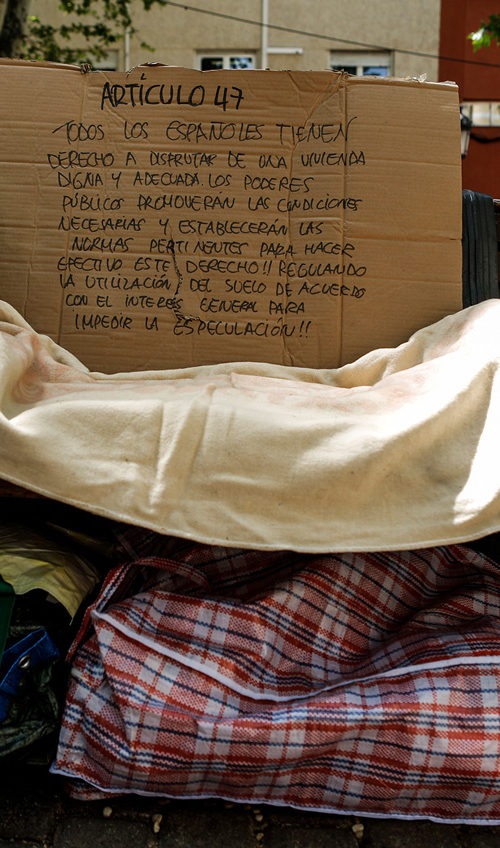 ARTÍCULO 47
TODOS LOS ESPAÑOLES TIENEN
DERECHO A DISFRUTAR DE UNA VIVIENDA
DIGNA Y ADECUADA. LOS PODERES
PÚBLICOS PROMOVERÁN LAS CONDICIONES
NECESARIAS Y ESTABLECERÁN LAS
NORMAS PERTINENTES PARA HACER
EFECTIVO ESTE DERECHO!! REGULANDO
LA UTILIZACIÓN DEL SUELO DE ACUERDO
CON EL INTERÉS GENERAL PARA
IMPEDIR LA ESPECULACIÓN!!